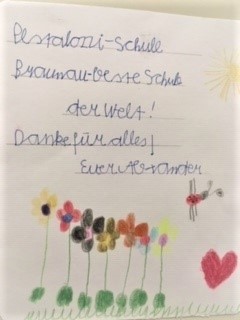 Pestalozzi-Schule
Braunau-beste Schule
der Welt!
Danke für alles!
Euer Alexander